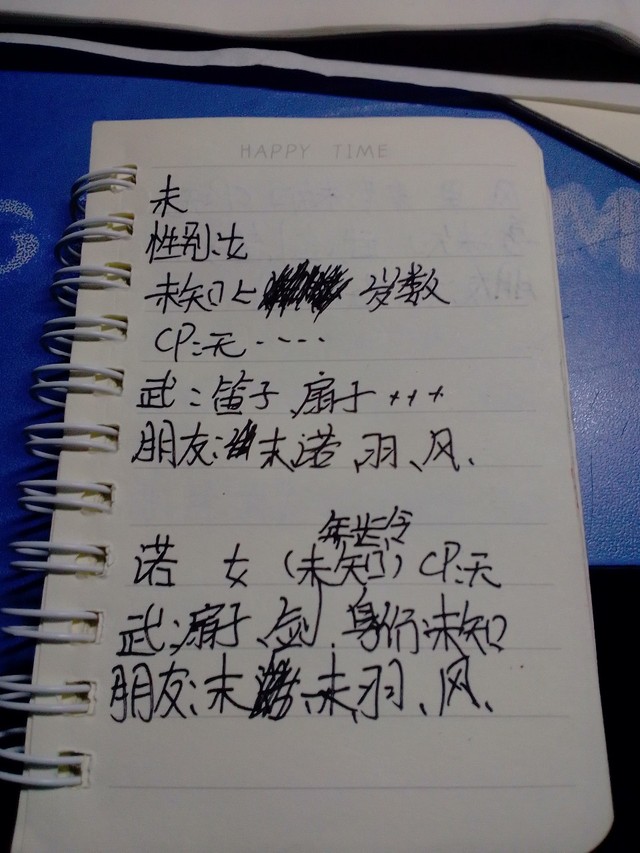 HAPPY TIME
未
性别:女
未知 岁数
CP:无····
武:笛子、扇子+++
朋友:末、诺、羽、风、
年龄
诺 女 (未知) CP:无
武:扇子、剑、身份:未知
朋友:末、未、羽、风、